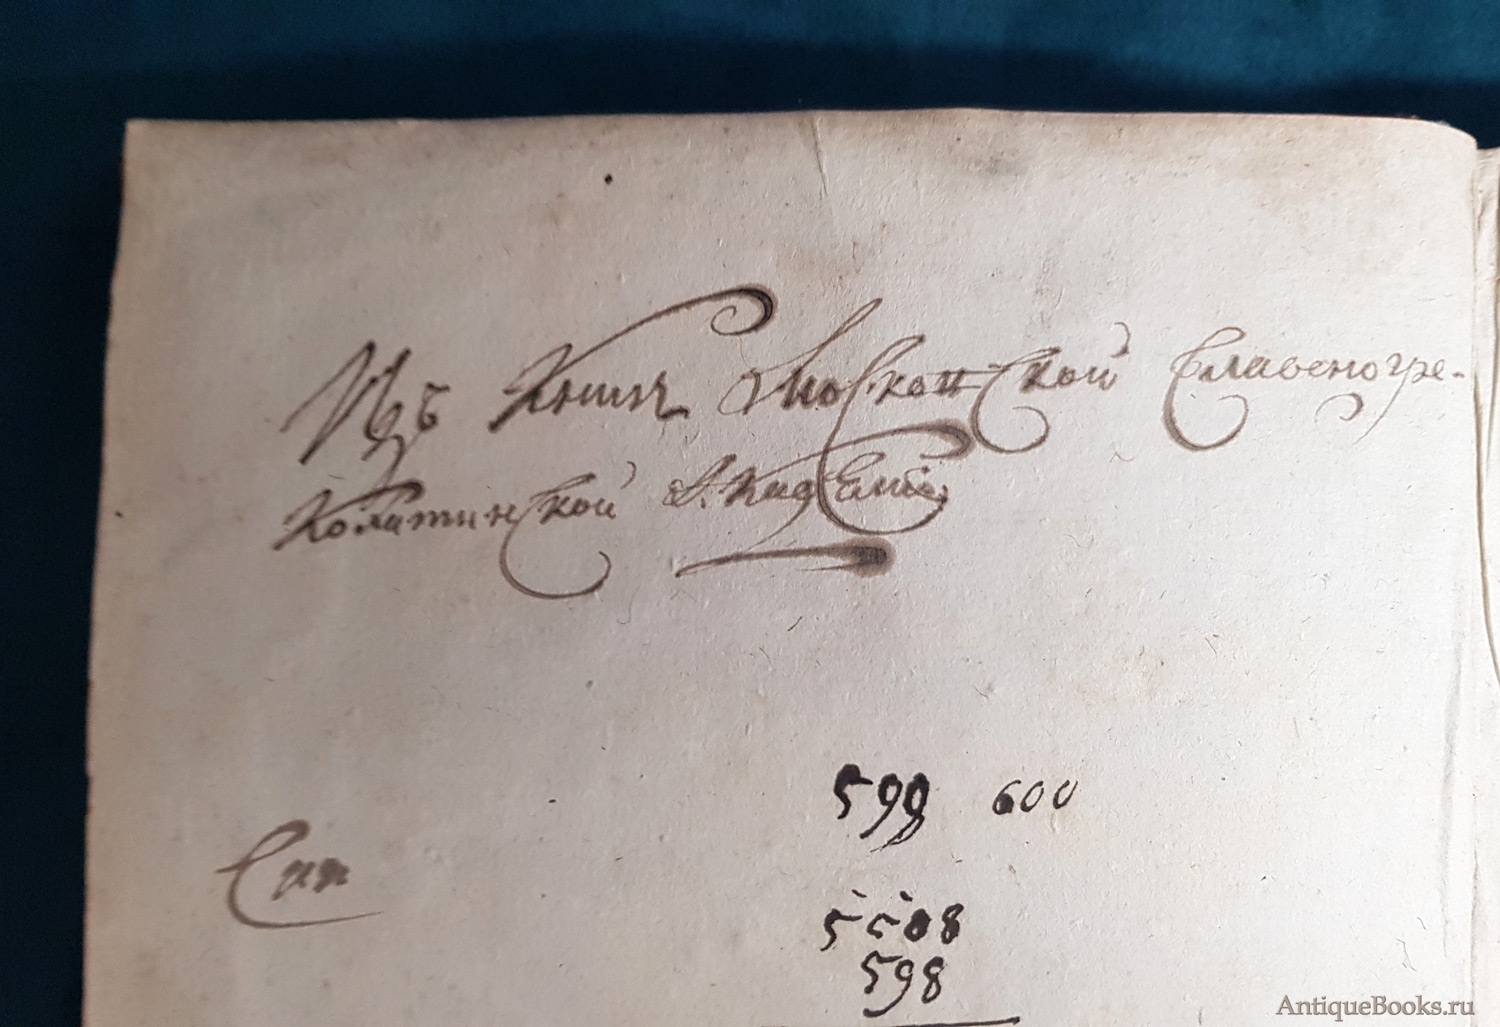 Изъ Книгъ Московской Славеногре-
колатинской Академіи
599 600
Сіи
5508
598
AntiqueBooks.ru